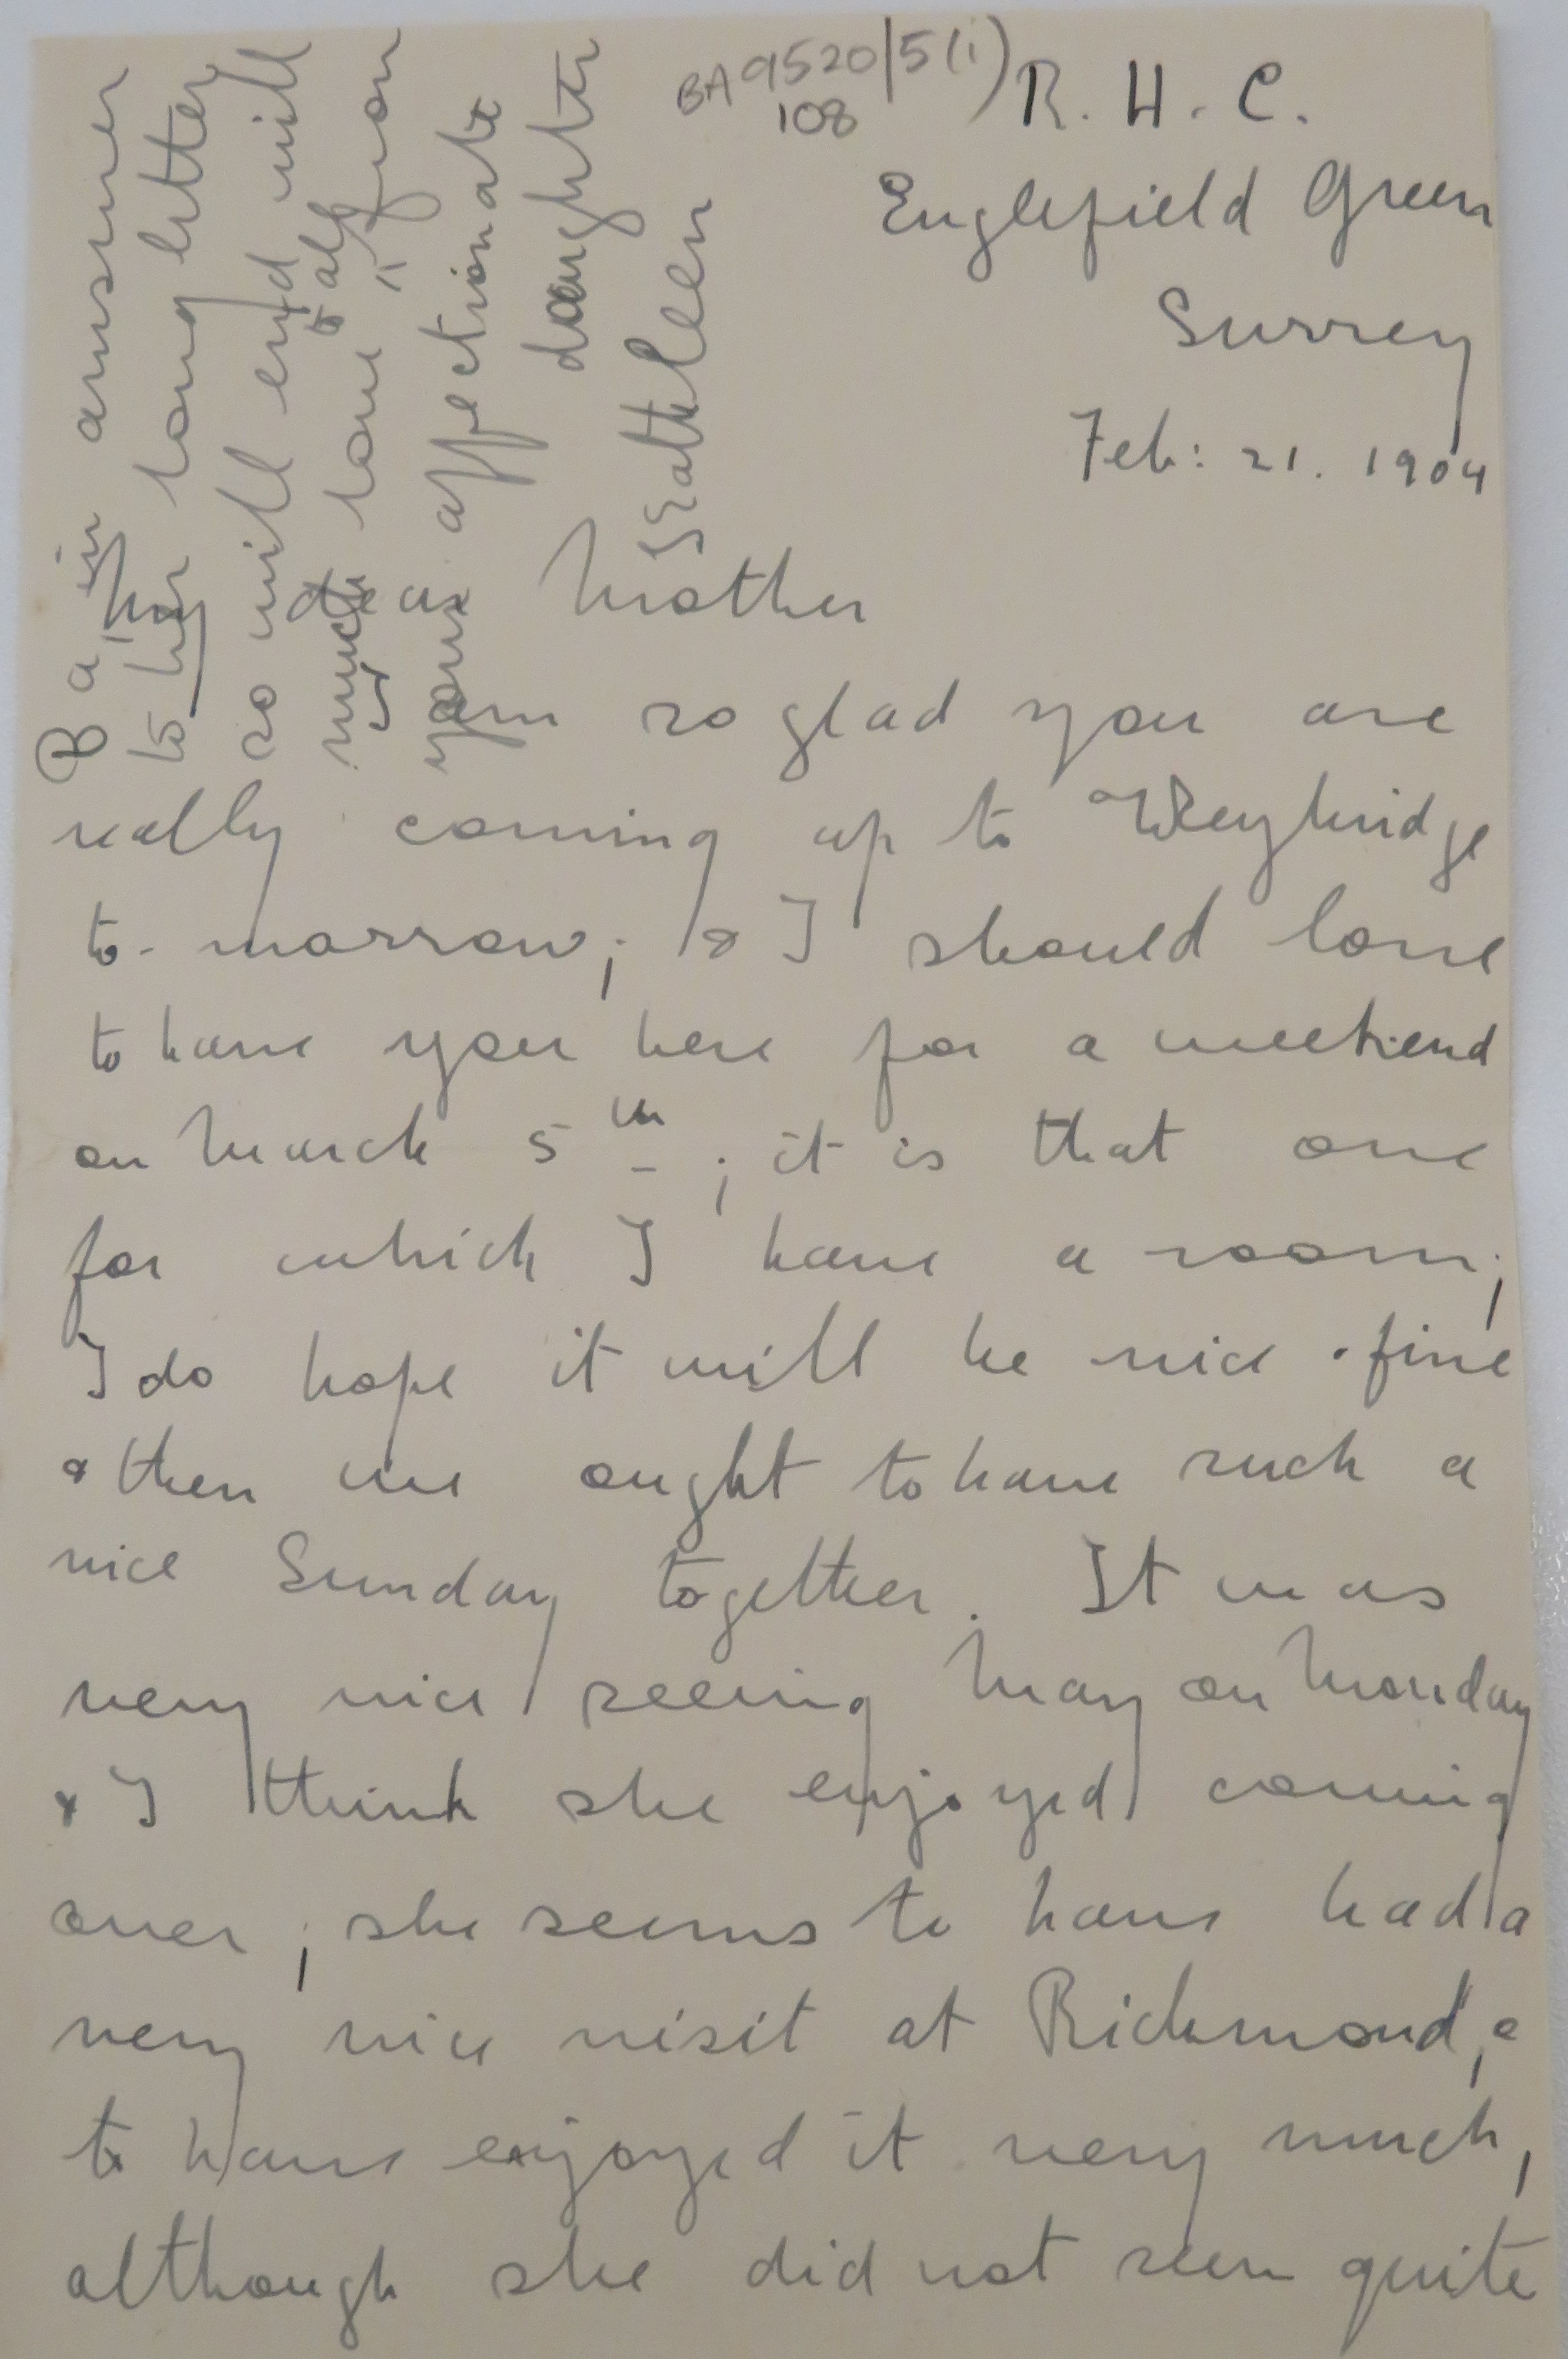 BA 9520/5(i)
108
R. H. C.
Englefield Green
Surrey
Feb: 21. 1904
My dear Mother
I am so glad you are
really coming up to Weybridge
to-morrow; & I should love
to have you here for a weekend
on March 5th; it is that one
for which I have a room;
I do hope it will be nice & fine
& then we ought to have such a
nice Sunday together. It was
very nice seeing May on Monday
& I think she enjoyed coming
over; she seems to have had a
very nice visit at Richmond, &
to have enjoyed it very much,
although she did not seem quite
Ba in answer
to her long letter
so will end with
much love to all from
your affectionate
daughter
Kathleen